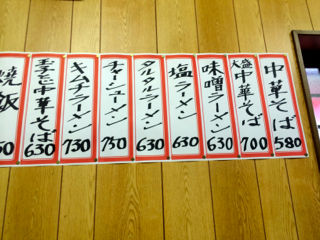 中華そば 580
大盛中華そば 700
味噌ラーメン 630
塩ラーメン 630
タルタルラーメン 630
チャーシューメン 730
キムチラーメン 730
玉子とじ中華そば 630
焼飯